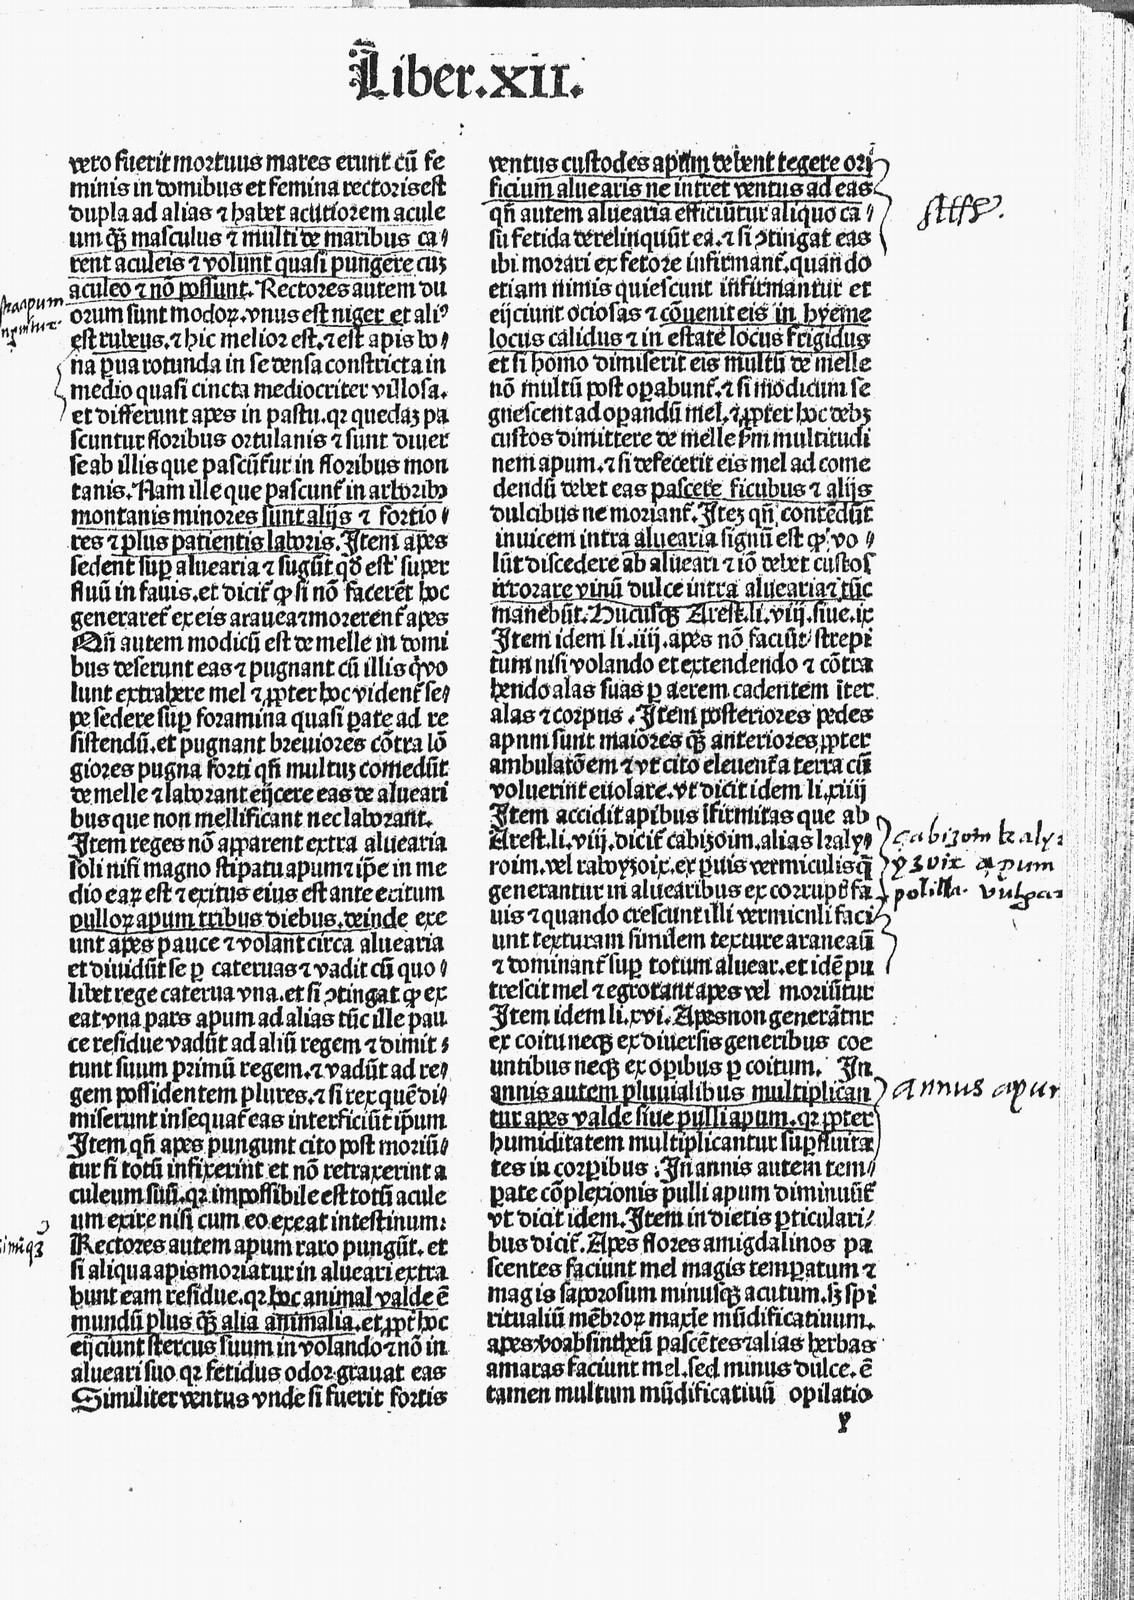 Liber.XII.
vero fuerit mortuus mares erunt cũ fe
minis in domibus et femina rectoris est
dupla ad alias ⁊ habet acutiorem acule
um qꝫ̃ masculus ⁊ multi de maribus ca⸗
rent aculeis ⁊ volunt quasi pungere cuꝫ
aculeo ⁊ nõ possunt. Rectores autem du
orum sunt modoꝝ. vnus est niger et aliꝰ
est rubeus. ⁊ hic melior est. ⁊ est apis bo⸗
na pũa rotunda in se densa constricta in
medio quasi cincta mediocriter villosa.
et differunt apes in pastu. qꝛ quedaꝫ pa
scuntur floribus ortulanis ⁊ sunt diuer
se ab illis que pascũtur in floribus mon
tanis. Nam ille que pascunt̃ in arboribꝫ
montanis minores sunt alijs ⁊ fortio⸗
res ⁊ plus patientis laboris. Item apes
sedent suꝑ aluearia ⁊ sugũt qd̃ est super
fluũ in fauis. et dicit̃ ꝙ si nõ facerẽt hoc
generaret̃ ex eis aranea ⁊ morerent̃ apes
Qñ autem modicũ est de melle in domi
bus deserunt eas ⁊ pugnant cũ illis q̃ vo
lunt extrahere mel ⁊ ꝓpter hoc vident̃ se⸗
pe sedere suꝑ foramina quasi ꝑate ad re
sistendũ. et pugnant breuiores cõtra lõ
giores pugna forti qñ multuꝫ comedũt
de melle ⁊ laborant eijcere eas de alueari
bus que non mellificant nec laborant.
Item reges nõ apparent extra aluearia
soli nisi magno stipatu apum ⁊ ip̃e in me
dio eaꝝ est ⁊ exitus eius est ante exitum
pulloꝝ apum tribus diebus. deinde exe
unt apes pauce ⁊ volant circa aluearia
et diuidũt se ꝑ cateruas ⁊ vadit cũ quo⸗
libet rege caterua vna. et si ꝯtingat ꝙ ex
eat vna pars apum ad alias tũc ille pau
ce residue vadũt ad aliũ regem ⁊ dimit⸗
tunt suum primũ regem. ⁊ vadũt ad re⸗
gem possidentem plures. ⁊ si rex quẽ di⸗
miserunt insequat̃ eas interficiũt ip̃um
Item qñ apes pungunt cito post moriũ⸗
tur si totũ infixerint et nõ retraxerint a
culeum suũ. qꝛ impossibile est totũ acule
um exire nisi cum eo exeat intestinum:
Rectores autem apum raro pungũt. et
si aliqua apis moriatur in alueari extra
hunt eam residue. qꝛ hoc animal valde ẽ
mundũ plus qꝫ̃ alia animalia. et ꝓpt̃ hoc
eijciunt stercus suum in volando ⁊ nõ in
alueari suo qꝛ fetidus odor grauat eas
Similiter ventus vnde si fuerit fortis
ventus custodes apum debent tegere ori
ficium aluearis ne intret ventus ad eas
qñ autem aluearia efficiũtur aliquo ca⸗
su fetida derelinquũt ea. ⁊ si ꝯtingat eas
ibi morari ex fetore infirmant̃. quando
etiam nimis quiescunt infirmantur et
eijciunt ociosas ⁊ cõuenit eis in hyeme
locus calidus ⁊ in estate locus frigidus
et si homo dimiserit eis multũ de melle
nõ multũ post oꝑabunt̃. ⁊ si modicum se
gnescent ad oꝑandũ mel. ⁊ ꝓpter hoc debꝫ
custos dimittere de melle ẜm multitudi
nem apum. ⁊ si defecerit eis mel ad come
dendũ debet eas pascere ficubus ⁊ alijs
dulcibus ne moriant̃. Iteꝫ qñ contẽdũt
inuicem intra aluearia signũ est ꝙ vo⸗
lũt discedere ab alueari ⁊ iõ debet custos
irrorare vinũ dulce intra aluearia ⁊ tũc
manebũt. Hucusqꝫ Arest. li. viij. siue. ix
Item idem li. iiij. apes nõ faciũt strepi
tum nisi volando et extendendo ⁊ cõtra
hendo alas suas ꝑ aerem cadentem ĩter
alas ⁊ corpus. Item posteriores pedes
apum sunt maiores qꝫ̃ anteriores ꝓpter
ambulatõem ⁊ vt cito eleuent̃ a terra cũ
voluerint euolare. vt dicit idem li. xiiij
Item accidit apibus ĩfirmitas que ab
Arest. li. viij. dicit̃ cabizoim. alias kaly⸗
roim. vel raboyzoix. ex ꝑuis vermiculis q̃
generantur in aluearibus ex corrupt̃ fa⸗
uis ⁊ quando crescunt illi vermiculi faci
unt texturam similem texture araneaũ
⁊ dominant̃ suꝑ totum aluear. et idẽ pu
trescit mel ⁊ egrotant apes vel moriũtur
Item idem li. xvi. Apes non generãtur
ex coitu neqꝫ ex diuersis generibus coe
untibus neqꝫ ex oꝑibus ꝑ coitum. In
annis autem pluuialibus multiplican
tur apes valde siue pulli apum. qꝛ ꝓpter
humiditatem multiplicantur suꝑfluita
tes in corꝑibus: In annis autem tem⸗
ꝑate cõplexionis pulli apum diminuũt̃
vt dicit idem. Item in dietis ꝑticulari⸗
bus dicit̃. Apes flores amigdalinos pa
scentes faciunt mel magis temꝑatum ⁊
magis saporosum minusqꝫ acutum. sꝫ spi
ritualiũ mẽbroꝝ maxĩe mũdificatiuum.
apes vo absintheũ pascẽtes ⁊ alias herbas
amaras faciunt mel. sed minus dulce. ẽ
tamen multum mũdificatiuũ opilatio
y
cabizom kaly
yzoix apum
polilla. vulgar
annus apum